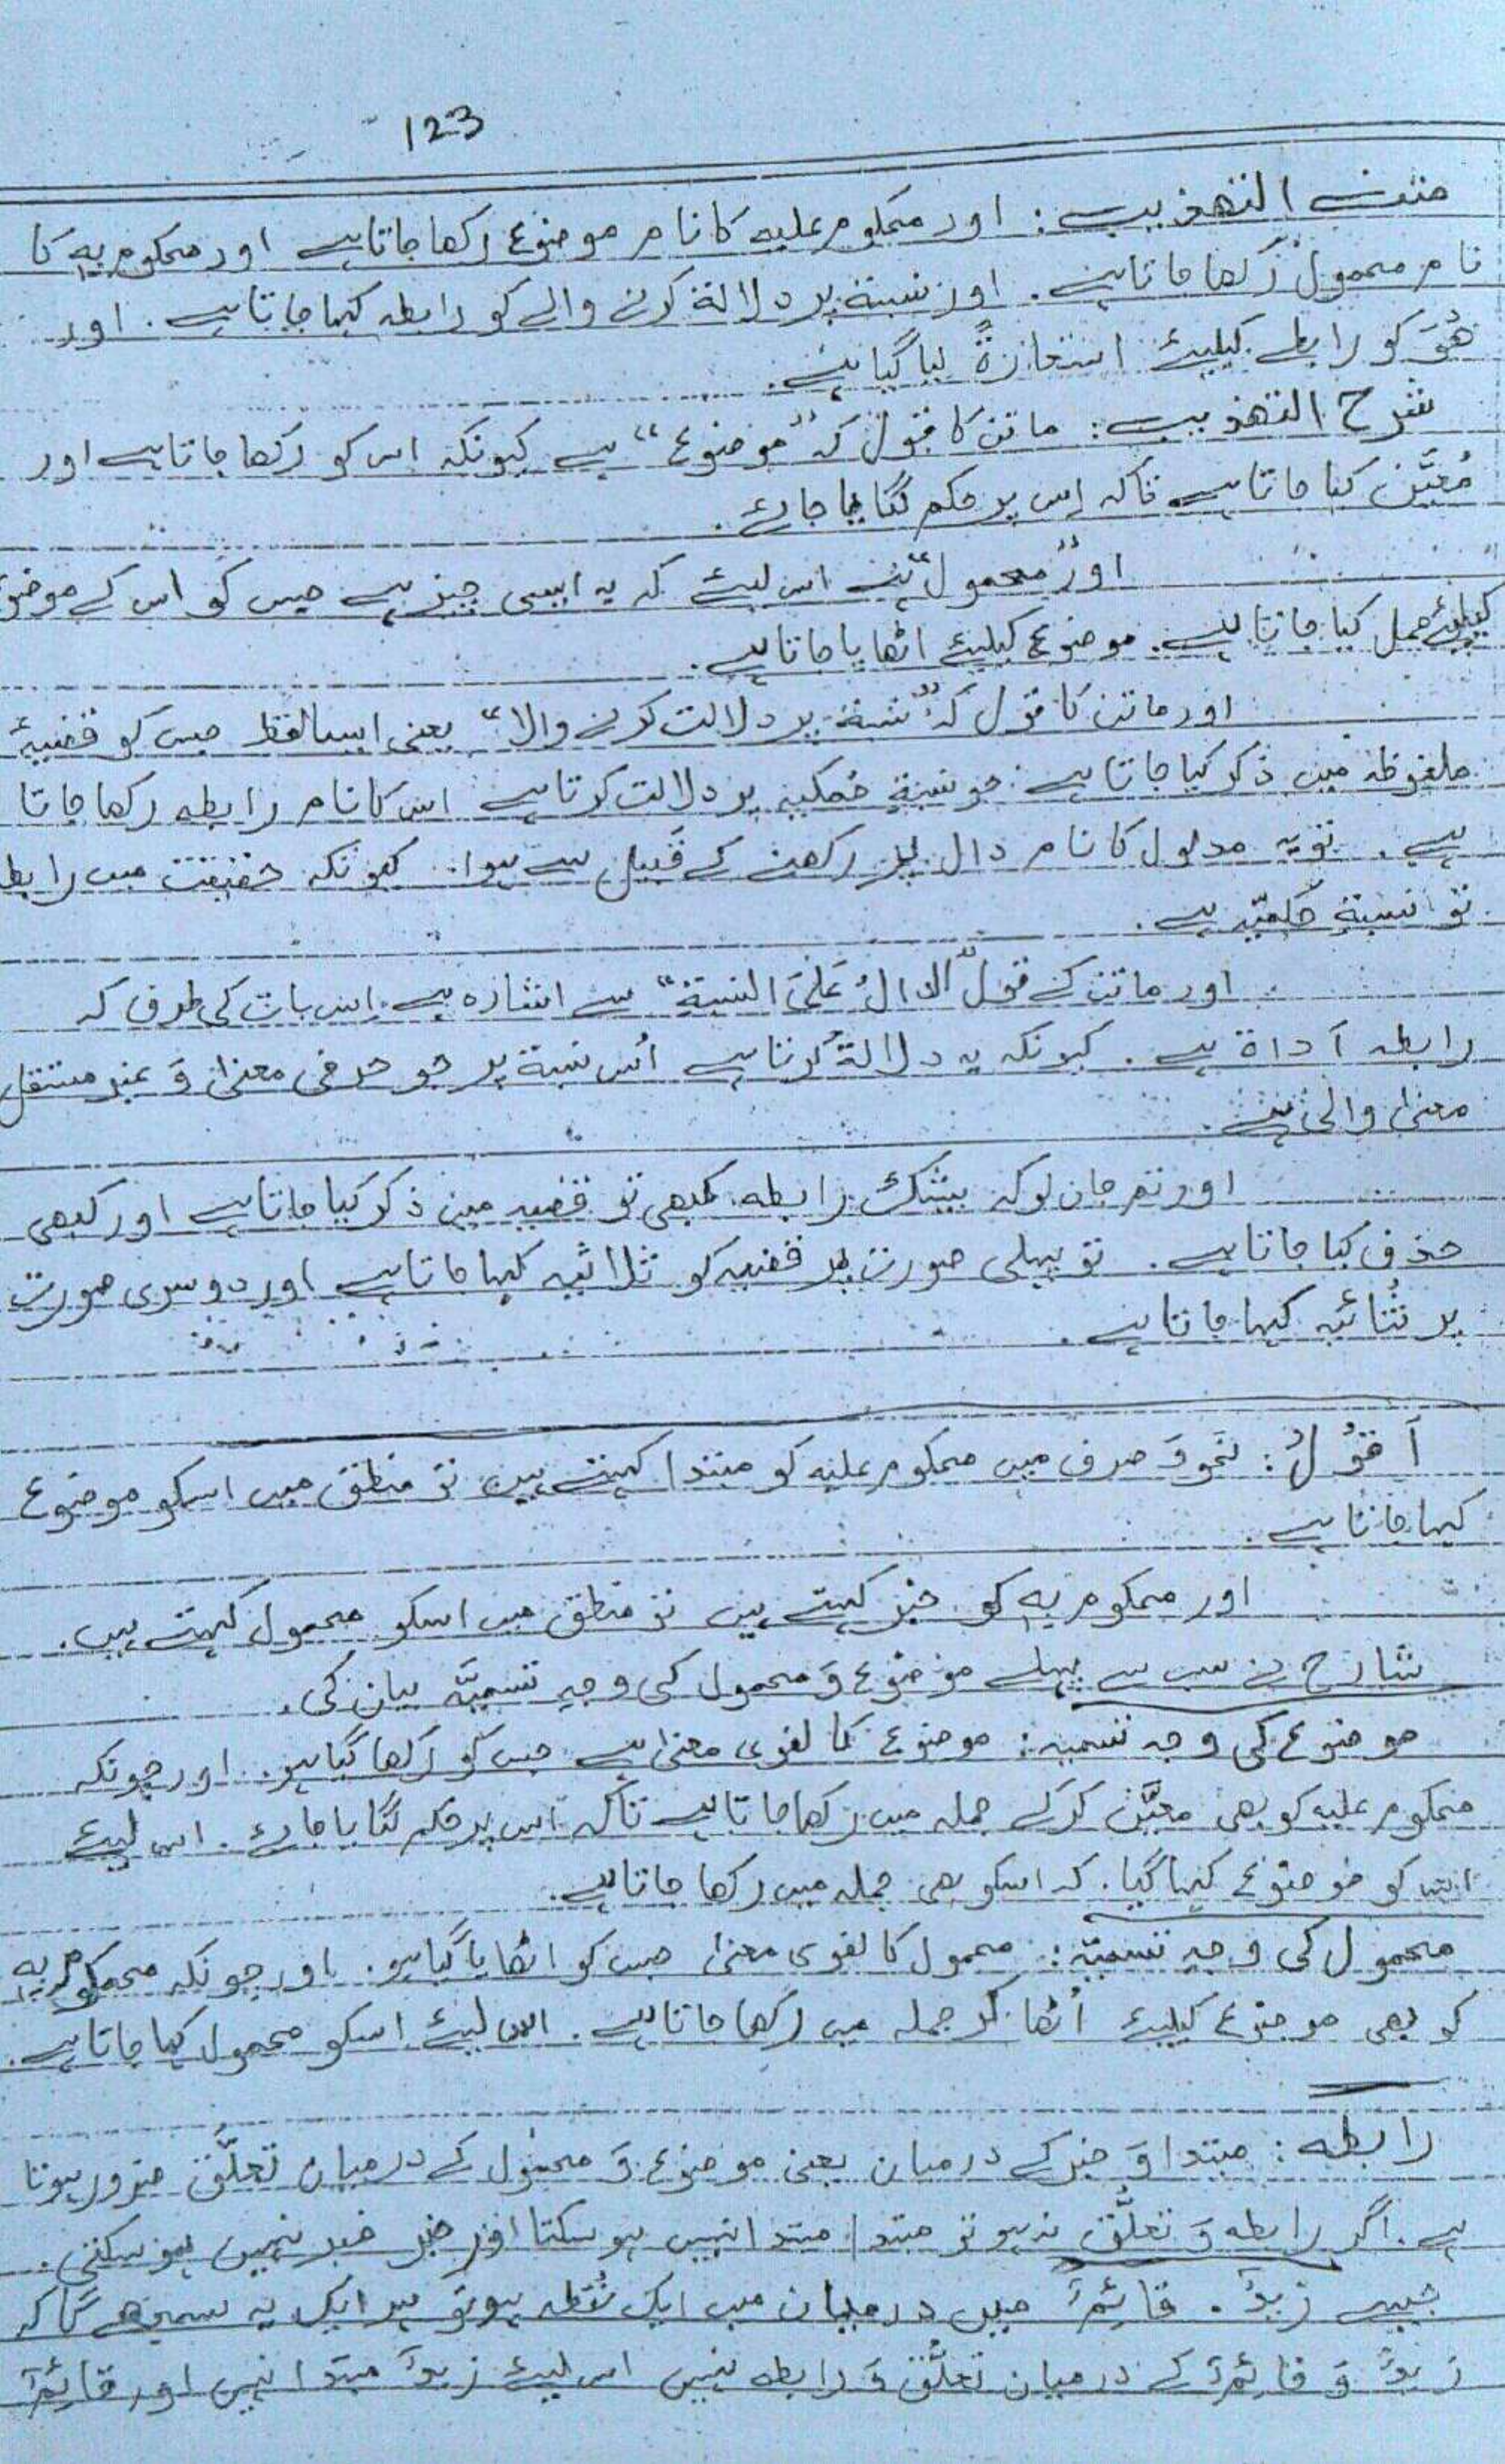 123
متن التھذیب: اور محکوم علیہ کا نام موضوع رکھا جاتا ہے اور محکوم بِہٖ کا
نام محمول رکھا جاتا ہے. اور نسبۃ پر دلالۃ کرنے والے کو رابطہ کہا جاتا ہے. اور
ھُوَ کو رابطے کیلیئے استعارۃً لیا گیا ہے.
شرح التھذیب: ماتن کا قول کہ "موضوع" ہے کیونکہ اس کو رکھا جاتا ہے اور
مُعیَّن کیا جاتا ہے تاکہ اِس پر حکم لگایا جائے.
اور "محمول" ہے اس لیئے کہ یہ ایسی چیز ہے جس کو اس کے موضوع
کیلیئے حمل کیا جاتا ہے. موضوع کیلیئے اٹھایا جاتا ہے.
اور ماتن کا قول کہ "نسبۃ پر دلالت کرنے والا" یعنی ایسا لفظ جس کو قضیۂ
ملفوظہ میں ذکر کیا جاتا ہے جو نسبۃِ حُکمیہ پر دلالت کرتا ہے اس کا نام رابطہ رکھا جاتا
ہے. تو یہ مدلول کا نام دال پر رکھنے کے قَبیل سے ہوا. کیونکہ حقیقت میں رابطہ
تو نسبۃِ حکمیّہ ہے.
اور ماتن کے قول "الدالُّ عَلیَ النسبۃِ" سے اشارہ ہے اِس بات کی طرف کہ
رابطہ اَداۃ ہے. کیونکہ یہ دلالۃ کرتا ہے اُس نسبۃ پر جو حرفی معنیٰ وَ غیر مستقل
معنیٰ والی ہے.
اور تم جان لو کہ بیشک رابطہ کبھی تو قضیہ میں ذکر کیا جاتا ہے اور کبھی
حذف کیا جاتا ہے. تو پہلی صورت پر قضیہ کو ثلاثیہ کہا جاتا ہے اور دوسری صورت
پر ثُنائیہ کہا جاتا ہے.
اَقُوْلُ: نَحو وَ صرف میں محکوم علیہ کو مبتدا کہتے ہیں تو منطق میں اسکو موضوع
کہا جاتا ہے.
اور محکوم بِہٖ کو خبر کہتے ہیں تو منطق میں اسکو محمول کہتے ہیں.
شارح نے سب سے پہلے موضوع وَ محمول کی وجہِ تسمیَّہ بیان کی.
موضوع کی وجہ تسمیہ: موضوع کا لغوی معنیٰ ہے جس کو رَکھا گیا ہو. اور چونکہ
محکوم علیہ کو بھی معیَّن کر کے جملہ میں رکھا جاتا ہے تاکہ اس پر حکم لگایا جائے. اس لیئے
اس کو موضوع کہا گیا. کہ اسکو بھی جملہ میں رکھا جاتا ہے.
محمول کی وجہِ تسمیّہ: محمول کا لغوی معنیٰ جس کو اٹھایا گیا ہو. اور چونکہ محکوم بِہٖ
کو بھی موضوع کیلیئے اُٹھا کر جملہ میں رَکھا جاتا ہے. اس لیئے اسکو محمول کہا جاتا ہے.
رابطہ: مبتدا وَ خبر کے درمیان یعنی موضوع وَ محمول کے درمیان تَعلُّق ضرور ہوتا
ہے. اگر رابطہ وَ تعلُّق نہ ہو تو مبتدا، مبتدا نہیں ہو سکتا اور خبر خبر نہیں ہو سکتی.
جیسے زیدٌ. قائِمٌ میں درمیان میں ایک نُقطہ ہو تو ہر ایک یہ سمجھے گا کہ
زیدٌ وَ قائِمٌ کے درمیان تعلُّق وَ رابطہ نہیں اس لیئے زیدٌ مبتدا نہیں اور قائِمٌ